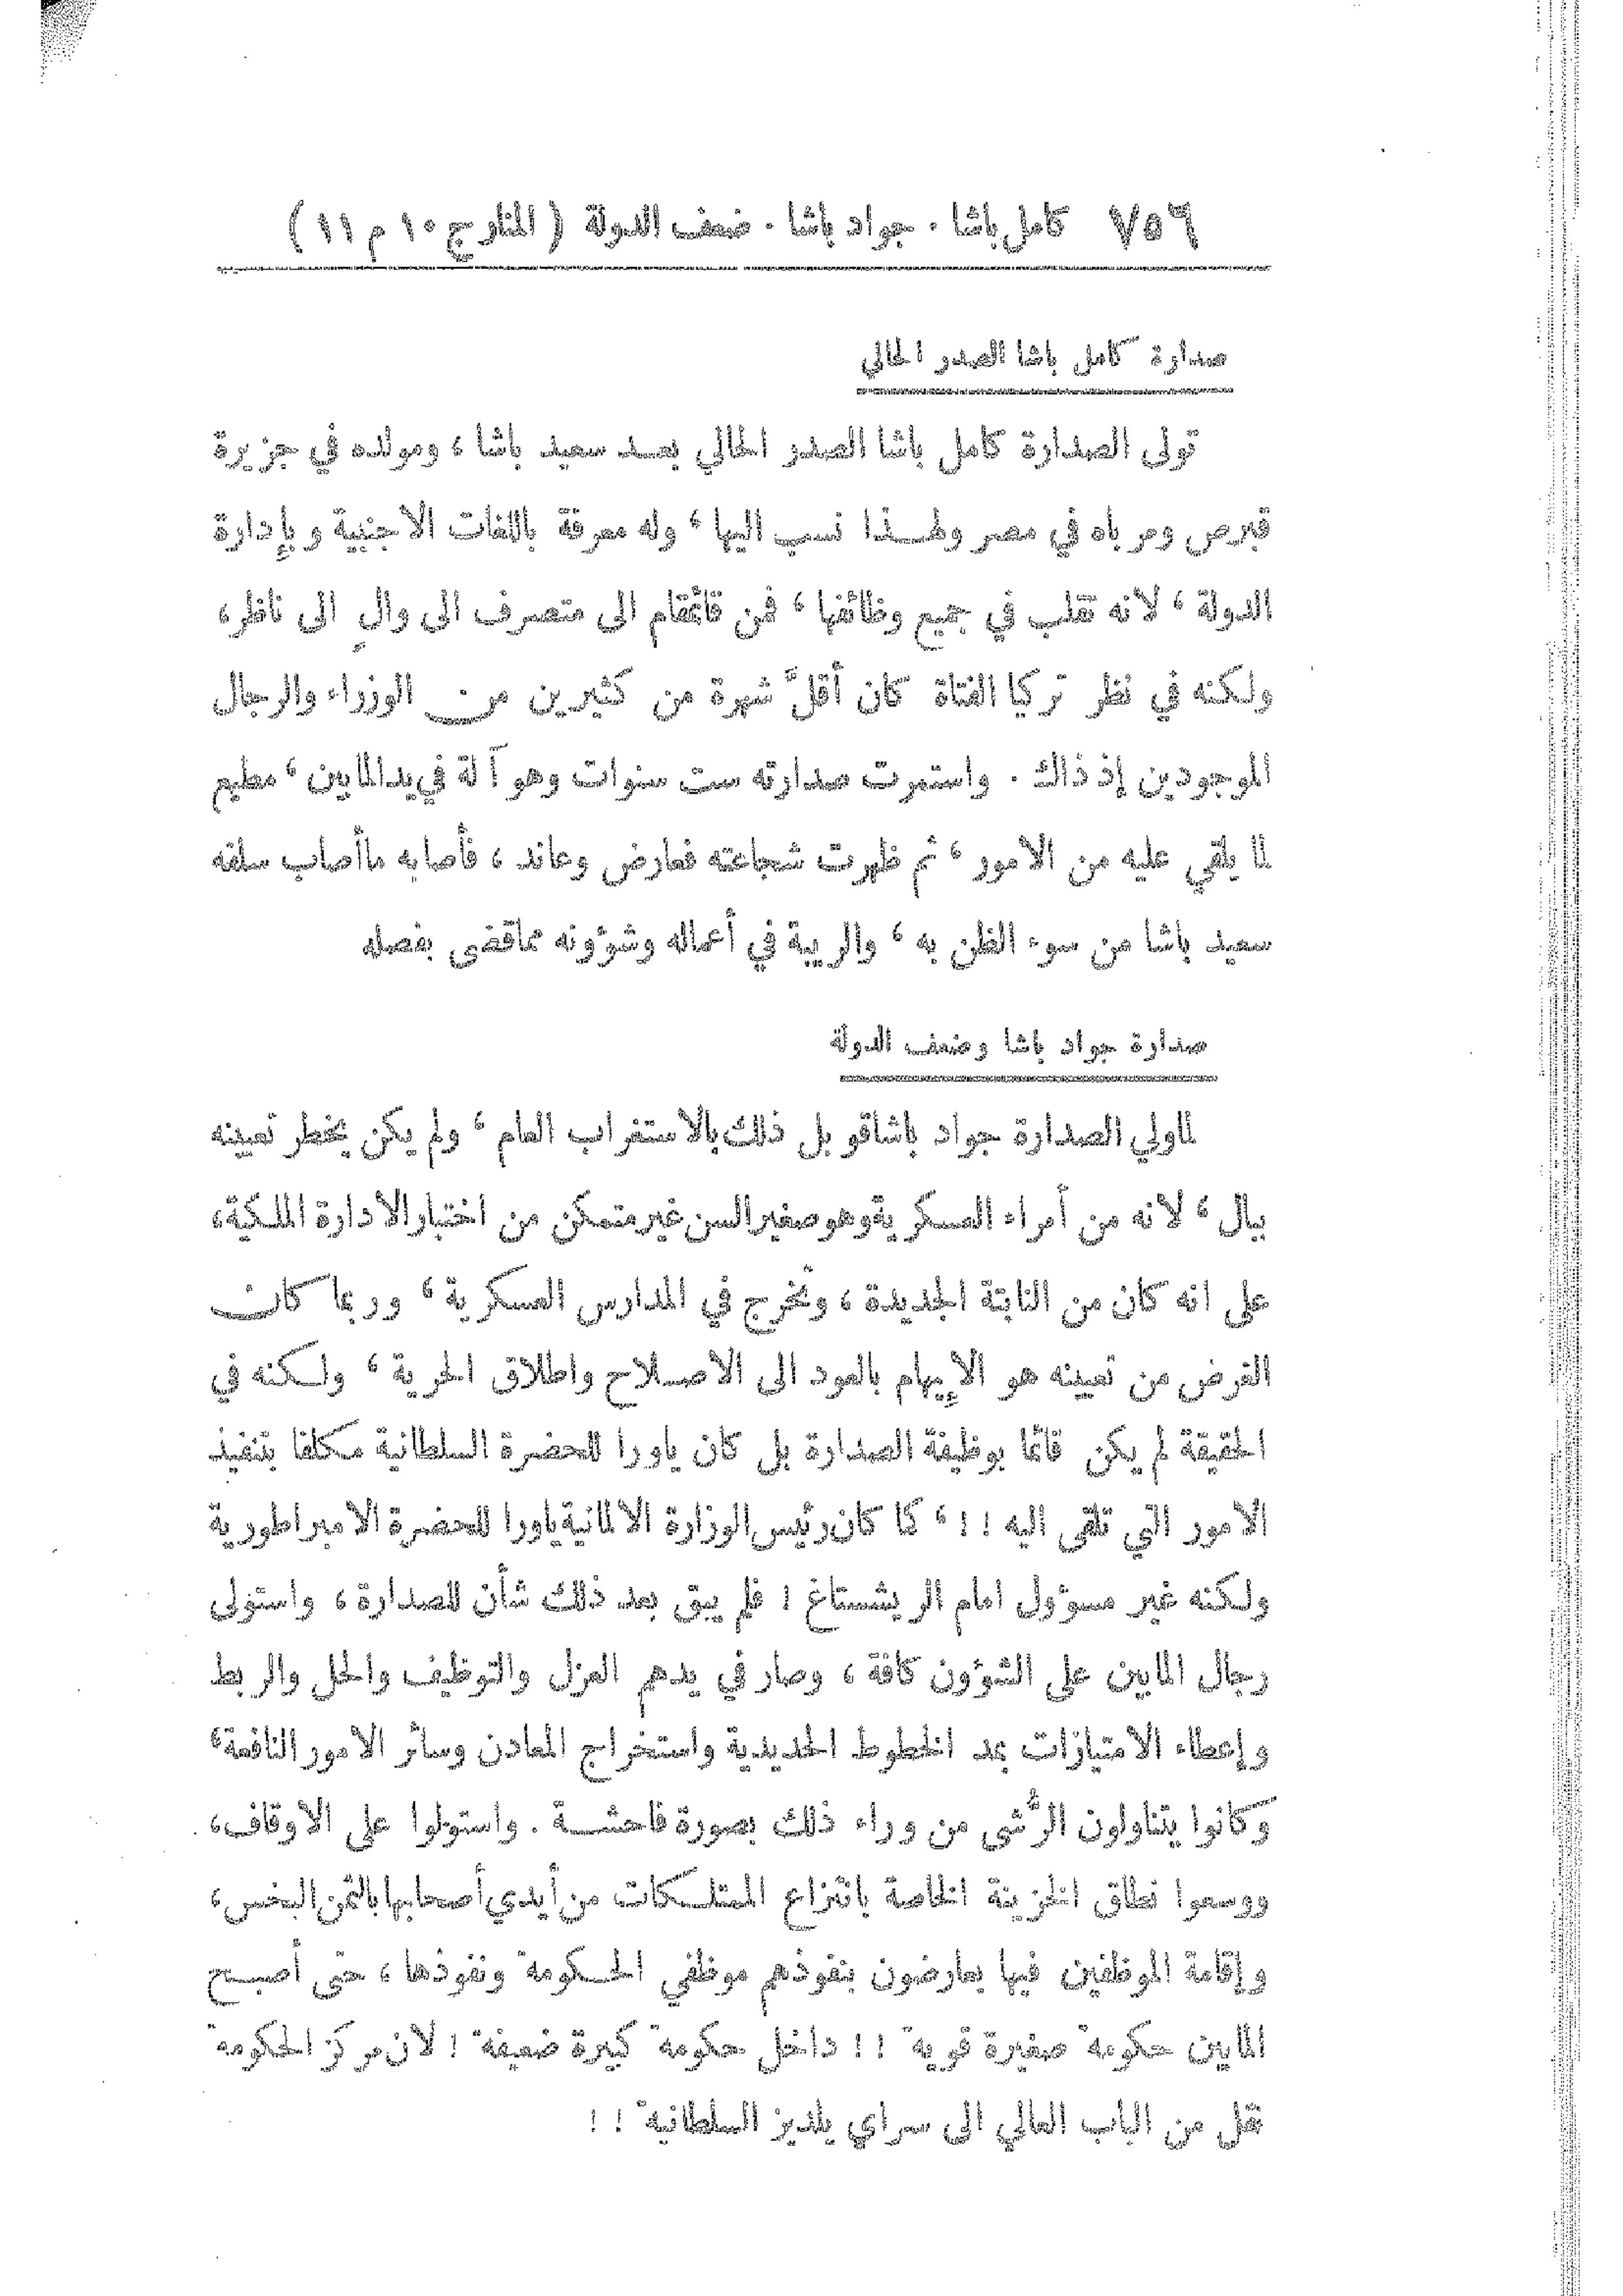 ٧٥٦ كامل باشا . جواد باشا . ضعف الدولة ( المنار ج ١٠ م ١١ )
صدارة كامل باشا الصدر الحالي
تولى الصدارة كامل باشا الصدر الحالي بعد سعيد باشا ، ومولده في جزيرة
قبرص ومرباه في مصر ولهذا نسب اليها ، وله معرفة باللغات الاجنبية وبإدارة
الدولة ، لانه تقلب في جميع وظائفها ، فمن قائمقام الى متصرف الى والٍ الى ناظر ،
ولكنه في نظر تركيا الفتاة كان أقلَّ شهرة من كثيرين من الوزراء والرجال
الموجودين إذ ذاك . واستمرت صدارته ست سنوات وهو آلة في يد المابين ، مطيع
لما يلقى عليه من الامور ، ثم ظهرت شجاعته فعارض وعاند ، فأصابه ماأصاب سلفه
سعيد باشا من سوء الظن به ، والريبة في أعماله وشؤونه مماقضى بفصله
صدارة جواد باشا وضعف الدولة
لماولي الصدارة جواد باشاقوبل ذلك بالاستغراب العام ، ولم يكن يخطر تعيينه
ببال ، لانه من أمراء العسكرية وهو صغير السن غير متمكن من اختبار الادارة الملكية ،
على انه كان من النابتة الجديدة ، وتخرج في المدارس العسكرية ، وربما كان
الغرض من تعيينه هو الإيهام بالعود الى الاصلاح واطلاق الحرية ، ولكنه في
الحقيقة لم يكن قائما بوظيفة الصدارة بل كان ياورا للحضرة السلطانية مكلفا بتنفيذ
الامور التي تلقى اليه !! ، كما كان رئيس الوزارة الالمانية ياورا للحضرة الامبراطورية
ولكنه غير مسؤول امام الريشستاغ ! فلم يبق بعد ذلك شأن للصدارة ، واستولى
رجال المابين على الشؤون كافة ، وصار في يدهم العزل والتوظيف والحل والربط
وإعطاء الامتيازات بمد الخطوط الحديدية واستخراج المعادن وسائر الامور النافعة ،
وكانوا يتناولون الرُّشى من وراء ذلك بصورة فاحشة . واستولوا على الاوقاف ،
ووسعوا نطاق الخزينة الخاصة بانتزاع الممتلكات من أيدي أصحابها بالثمن البخس ،
وإقامة الموظفين فيها يعارضون بنفوذهم موظفي الحكومة ونفوذها ، حتى أصبح
المابين حكومة صغيرة قوية !! داخل حكومة كبيرة ضعيفة ! لان مركز الحكومة
نقل من الباب العالي الى سراي يلديز السلطانية !!